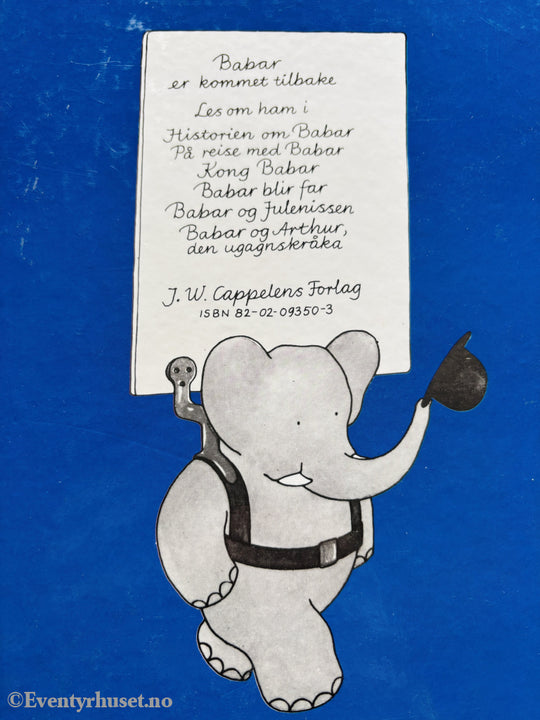 Babar
er kommet tilbake
Les om ham i
Historien om Babar
På reise med Babar
Kong Babar
Babar blir far
Babar og Julenissen
Babar og Arthur,
den ugagnskråka
J. W. Cappelens Forlag
ISBN 82-02-09350-3
©Eventyrhuset.no